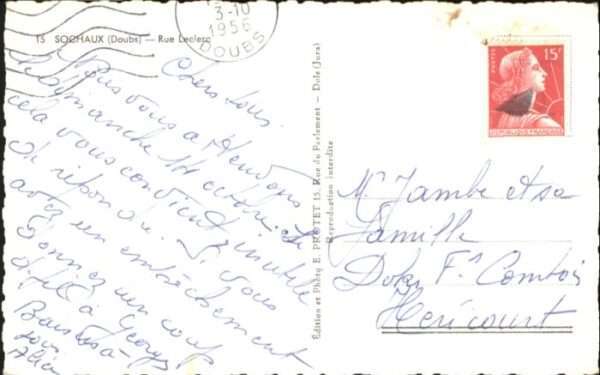 3-10
1956
DOUBS
15 SOCHAUX (Doubs) — Rue Leclerc
Chers tous
vous a Hendons
le dimanche 14 octobre. Si
cela vous convient inutile
de répondre. Si vous
avez un empêchement
donnez un coup
à Georges
Baisers à
tous
Édition et Photo E. PROTET 15, Rue du Parlement — Dole (Jura)
Reproduction interdite
POSTES
15F
REPUBLIQUE FRANÇAISE
Mr Jambe et sa
famille
Doks Fs Comtois
Héricourt